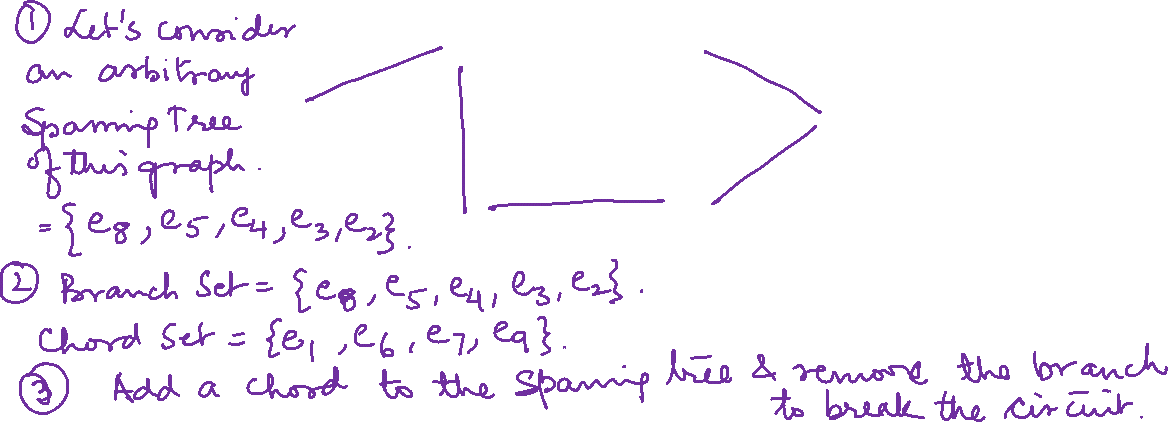 ① Let's consider
an arbitrary
Spanning Tree
of this graph.
= {e8, e5, e4, e3, e2}.
② Branch Set = {e8, e5, e4, e3, e2}.
Chord Set = {e1, e6, e7, e9}.
③ Add a chord to the Spanning tree & remove the branch
to break the circuit.